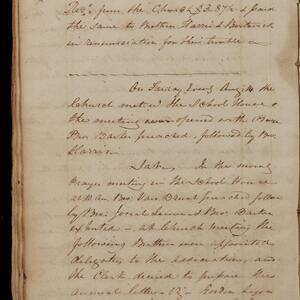 from the Church $3.87½ & paid
the same to Brethren Harris &
in renumeration for their trouble
On Friday Aug 14 the
Church met in the School House &
the meeting was opened with
Bro Baxter preached, followed by Bro
Harris.
Saty. In the morning
Prayer meeting in the School House
at 10 AM Bro Van Brunt preached follow
by Bro Josiah & Bro Baxter
exhorted — at Church meeting the
following Brethren were appointed
delegates to the association, and
the Clerk desired to prepare the
annual letter, viz